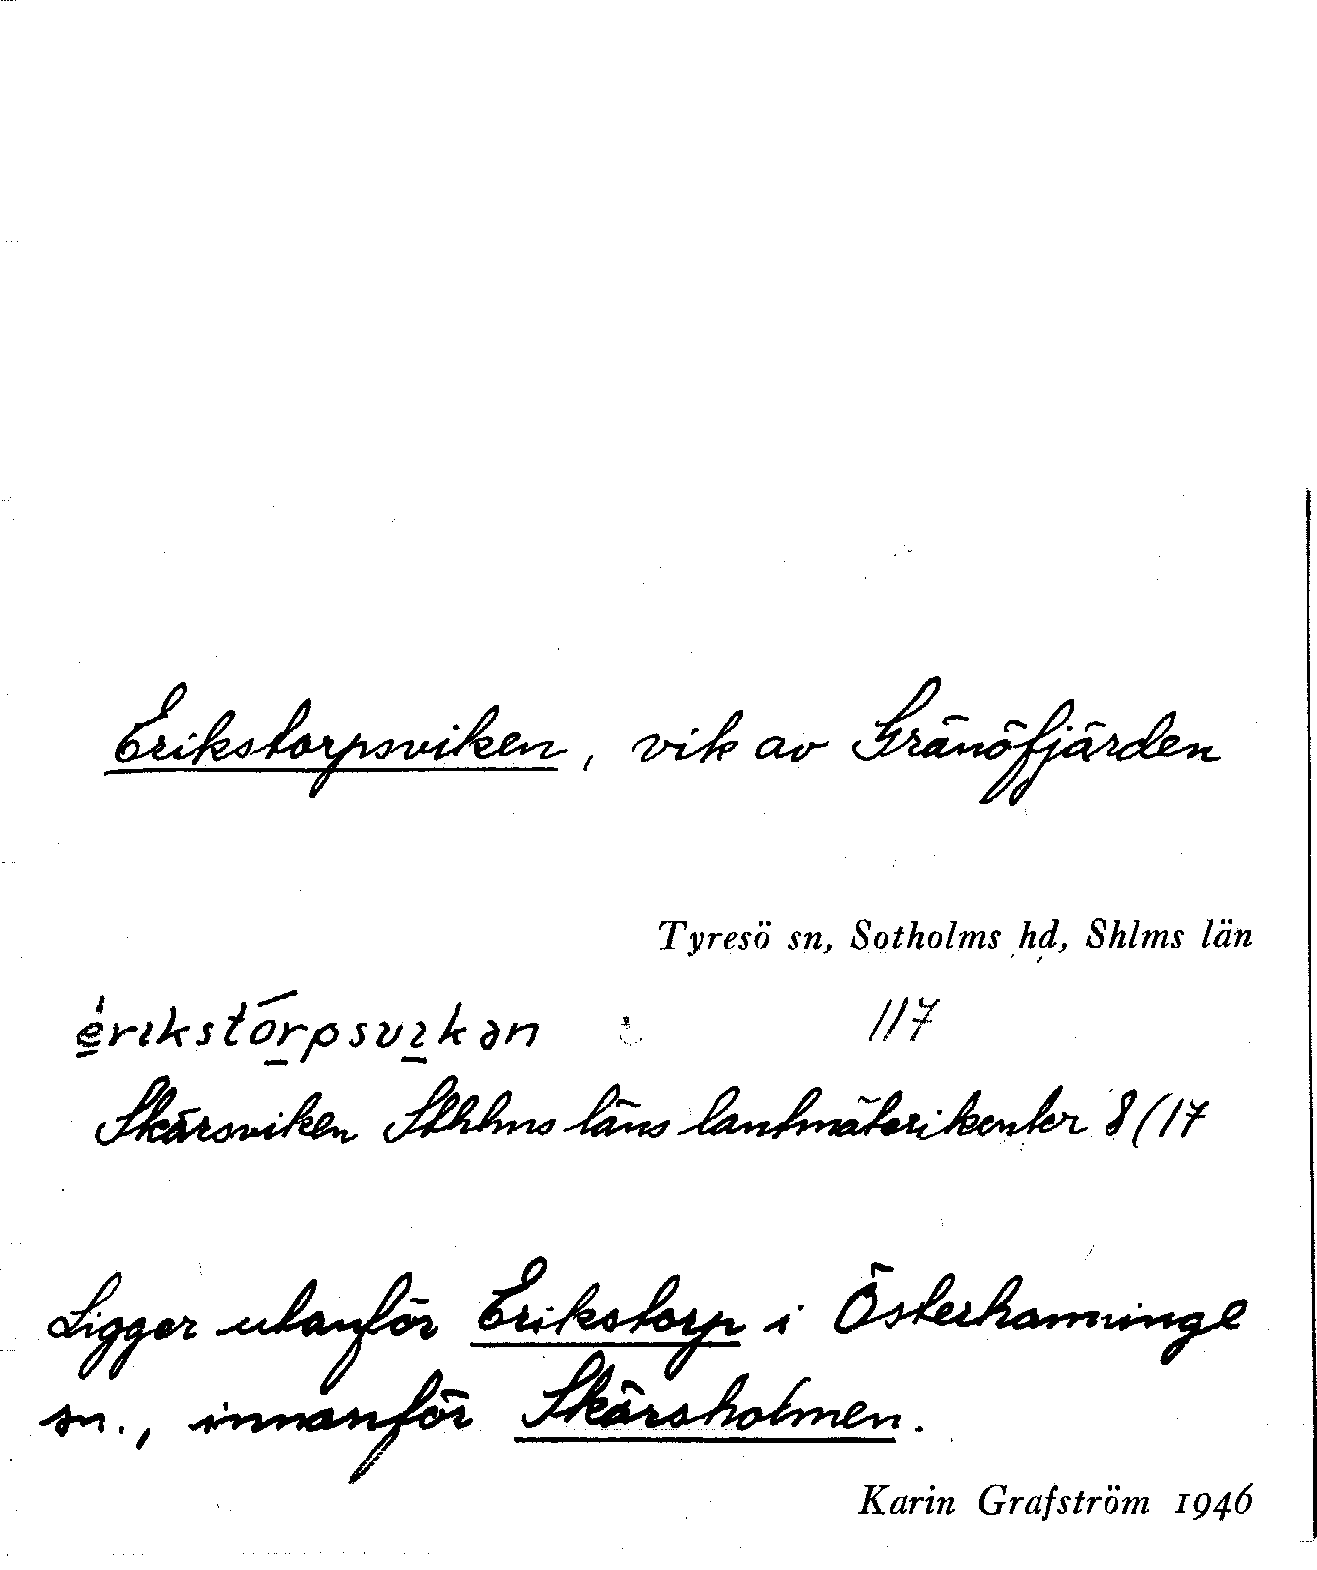 Erikstorpsviken, vik av Gränöfjärden
Tyresö sn, Sotholms hd, Shlms län
èrikstórpsvikən 117
Skärsviken Sthlms läns lantmäterikontor 8(17
Ligger utanför Erikstorp i Österhanninge
sn., innanför Skärsholmen.
Karin Grafström 1946